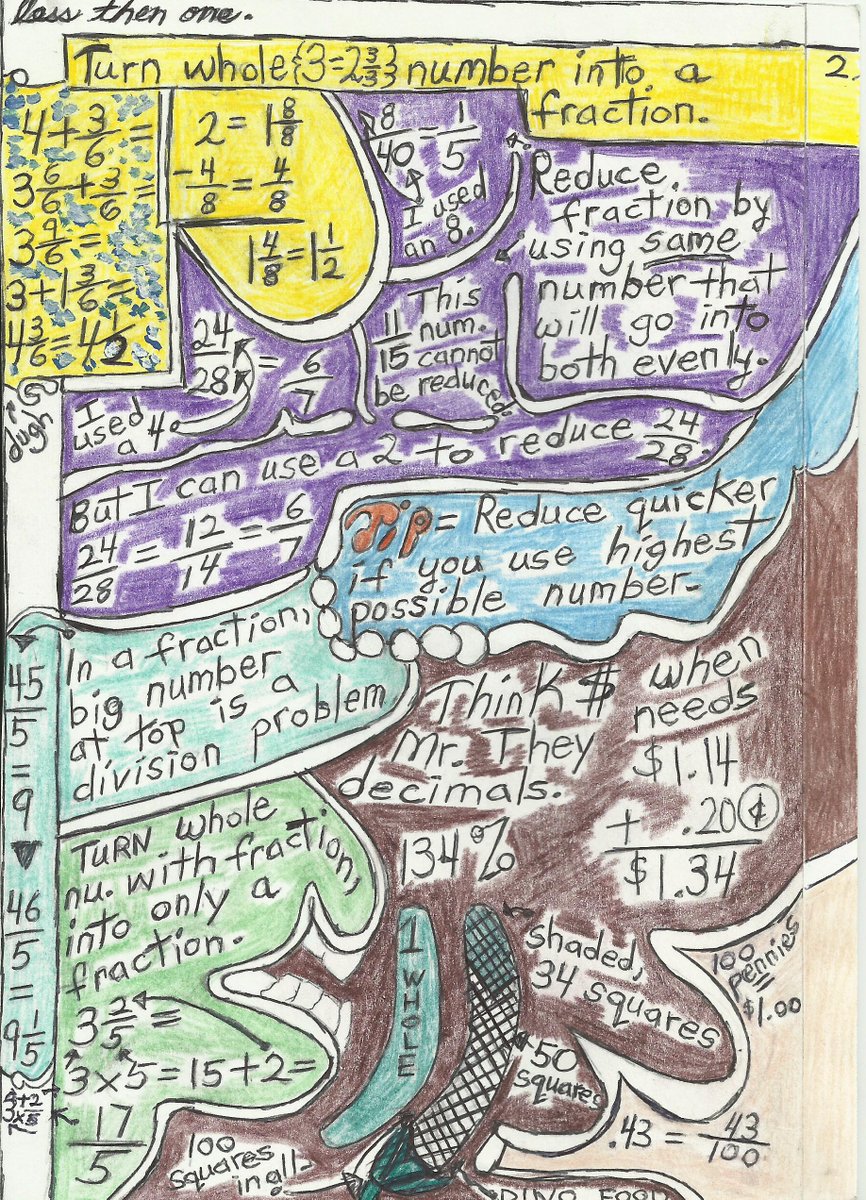 less then one.
Turn whole {3=2 3/3} number into a
fraction.
2.
4 + 3/6 =
3 6/6 + 3/6 =
3 9/6 =
3 + 1 3/6 =
4 3/6 = 4 1/2
2 = 1 8/8
- 4/8 = 4/8
1 4/8 = 1 1/2
8/40 = 1/5
I used
an 8.
Reduce
fraction by
using same
number that
will go into
both evenly.
24/28 = 6/7
I
used
a 4.
This
num.
11/15 cannot
be reduced.
But I can use a 2 to reduce 24/28.
24/28 = 12/14 = 6/7
Tip = Reduce quicker
if you use highest
possible number.
45/5
=
9
46/5
=
9 1/5
In a fraction,
big number
at top is a
division problem
Think $ when
Mr. They needs
decimals.
$1.14
+ .20¢
$1.34
134%
TURN whole
nu. with fraction,
into only a
fraction.
3 2/5 =
3 x 5 = 15 + 2 =
17/5
1 WHOLE
shaded,
34 squares
50
squares
100
squares
in all.
100
pennies
=
$1.00
.43 = 43/100
DINO FOOD